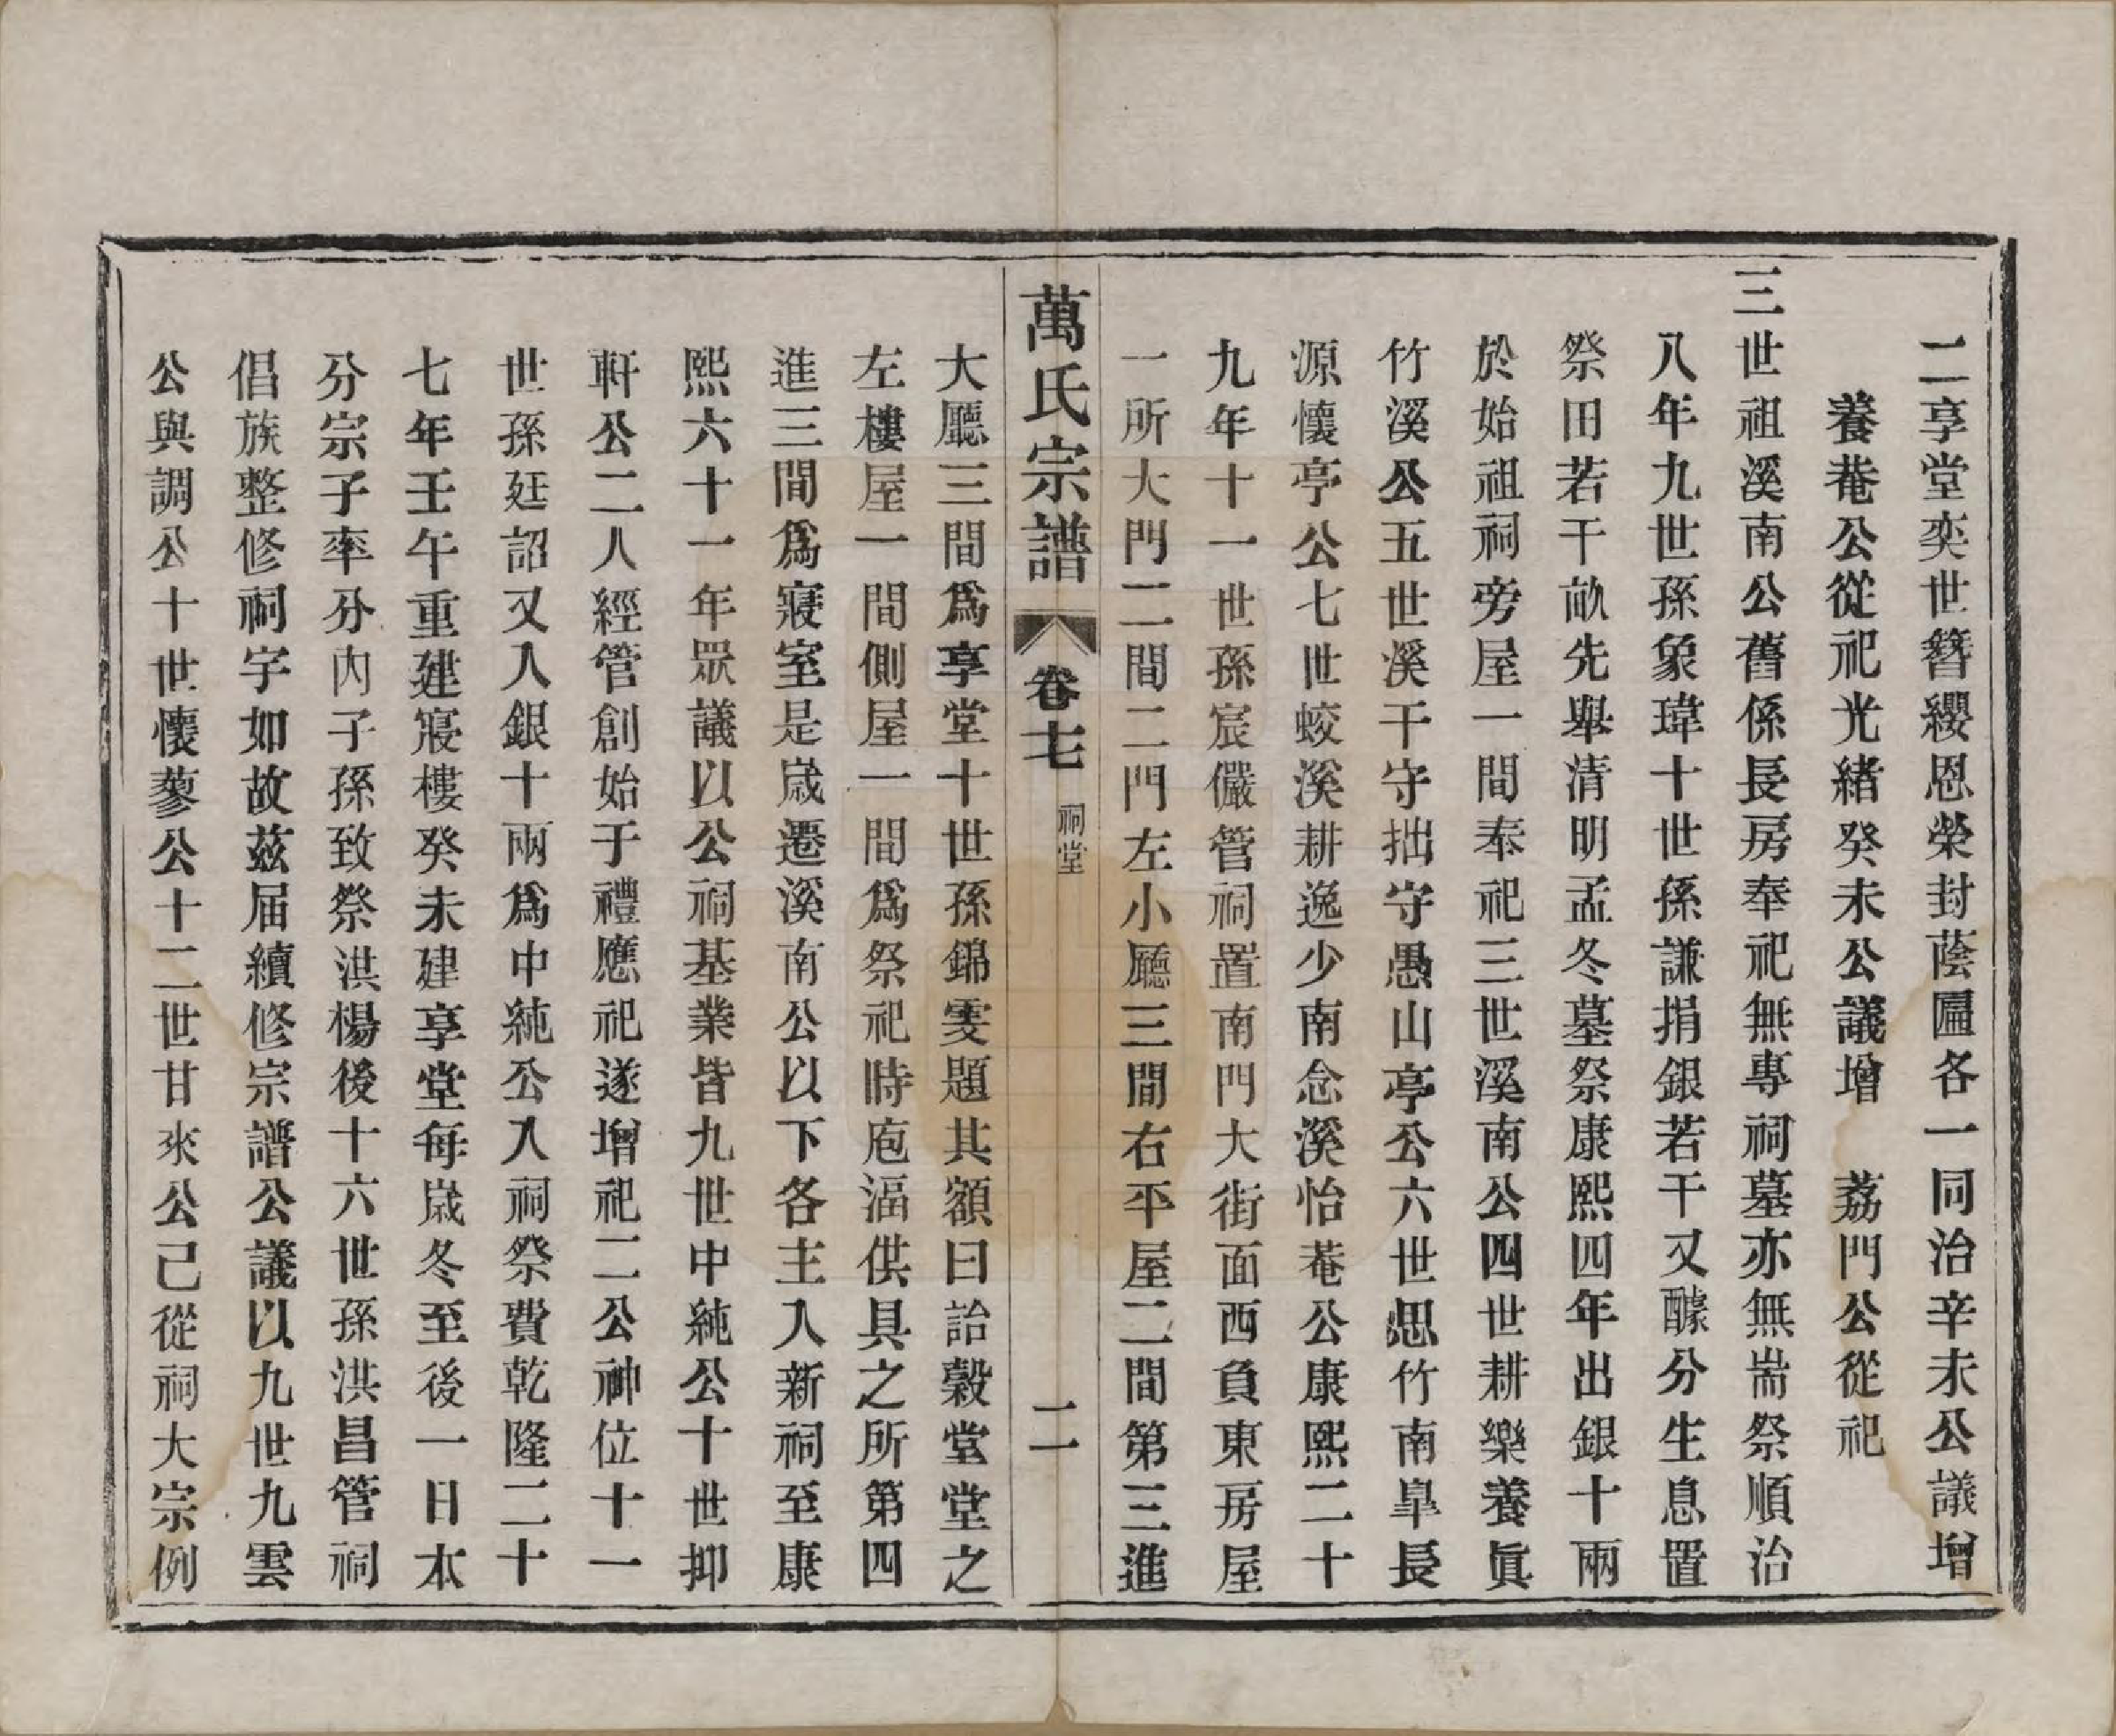 二享堂奕世簪纓恩榮封蔭匾各一同治辛未公議增
養菴公從祀光緒癸未公議增　荔門公從祀
三世祖溪南公舊係長房奉祀無專祠墓亦無耑祭順治
八年九世孫象瑋十世孫謙捐銀若干又醵分生息置
祭田若干畝先舉清明孟冬墓祭康熙四年出銀十兩
於始祖祠旁屋一間奉祀三世溪南公四世耕樂養眞
竹溪公五世溪干守拙守愚山亭公六世思竹南皐長
源懷亭公七世蛟溪耕逸少南念溪怡菴公康熙二十
九年十一世孫宸儼管祠置南門大街面西負東房屋
一所大門二間二門左小廳三間右平屋二間第三進
萬氏宗譜　卷七　祠堂　二
大廳三間爲享堂十世孫錦雯題其額曰詒穀堂堂之
左樓屋一間側屋一間爲祭祀時庖湢供具之所第四
進三間爲寢室是歲遷溪南公以下各主入新祠至康
熙六十一年眾議以公祠基業皆九世中純公十世抑
軒公二人經管創始于禮應祀遂增祀二公神位十一
世孫廷詔又入銀十兩爲中純公入祠祭費乾隆二十
七年壬午重建寢樓癸未建享堂每歲冬至後一日本
分宗子率分內子孫致祭洪楊後十六世孫洪昌管祠
倡族整修祠宇如故茲届續修宗譜公議以九世九雲
公與調公十世懷蓼公十二世甘來公己從祠大宗例